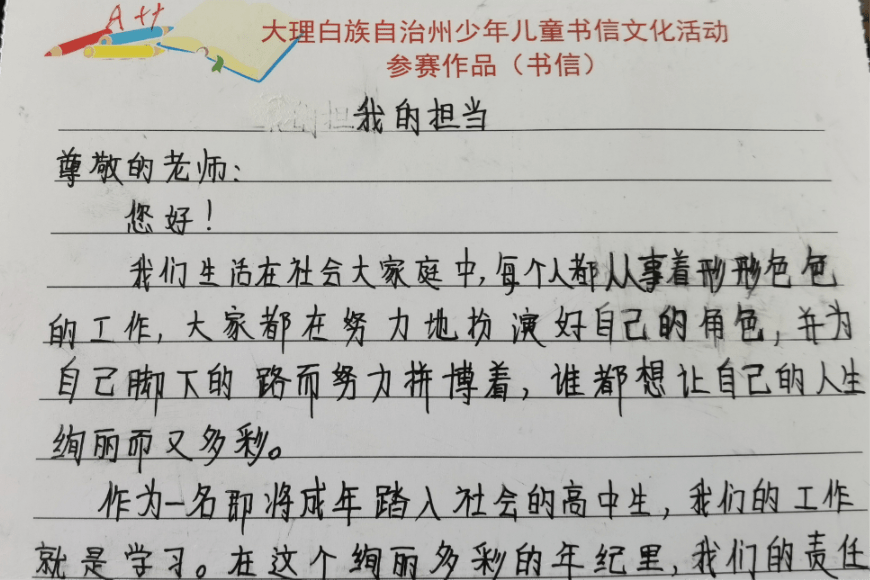 A++
大理白族自治州少年儿童书信文化活动
参赛作品（书信）
我的担当
尊敬的老师：
您好！
我们生活在社会大家庭中，每个人都从事着形形色色
的工作，大家都在努力地扮演好自己的角色，并为
自己脚下的路而努力拼博着，谁都想让自己的人生
绚丽而又多彩。
作为一名即将成年踏入社会的高中生，我们的工作
就是学习。在这个绚丽多彩的年纪里，我们的责任